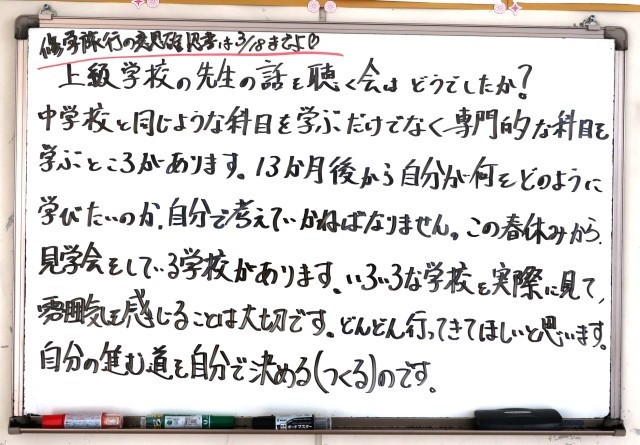 修学旅行の意思確認書は3/18までよ♡
上級学校の先生の話を聴く会は どうでしたか?
中学校と同じような科目を学ぶだけでなく専門的な科目を
学ぶところがあります。13か月後から自分が何をどのように
学びたいのか、自分で考えていかねばなりません。この春休みから、
見学会をしている学校があります。いろいろな学校を実際に見て、
雰囲気を感じることは大切です。どんどん行ってきてほしいと思います。
自分の進む道を自分で決める(つくる)のです。
ボードマスター